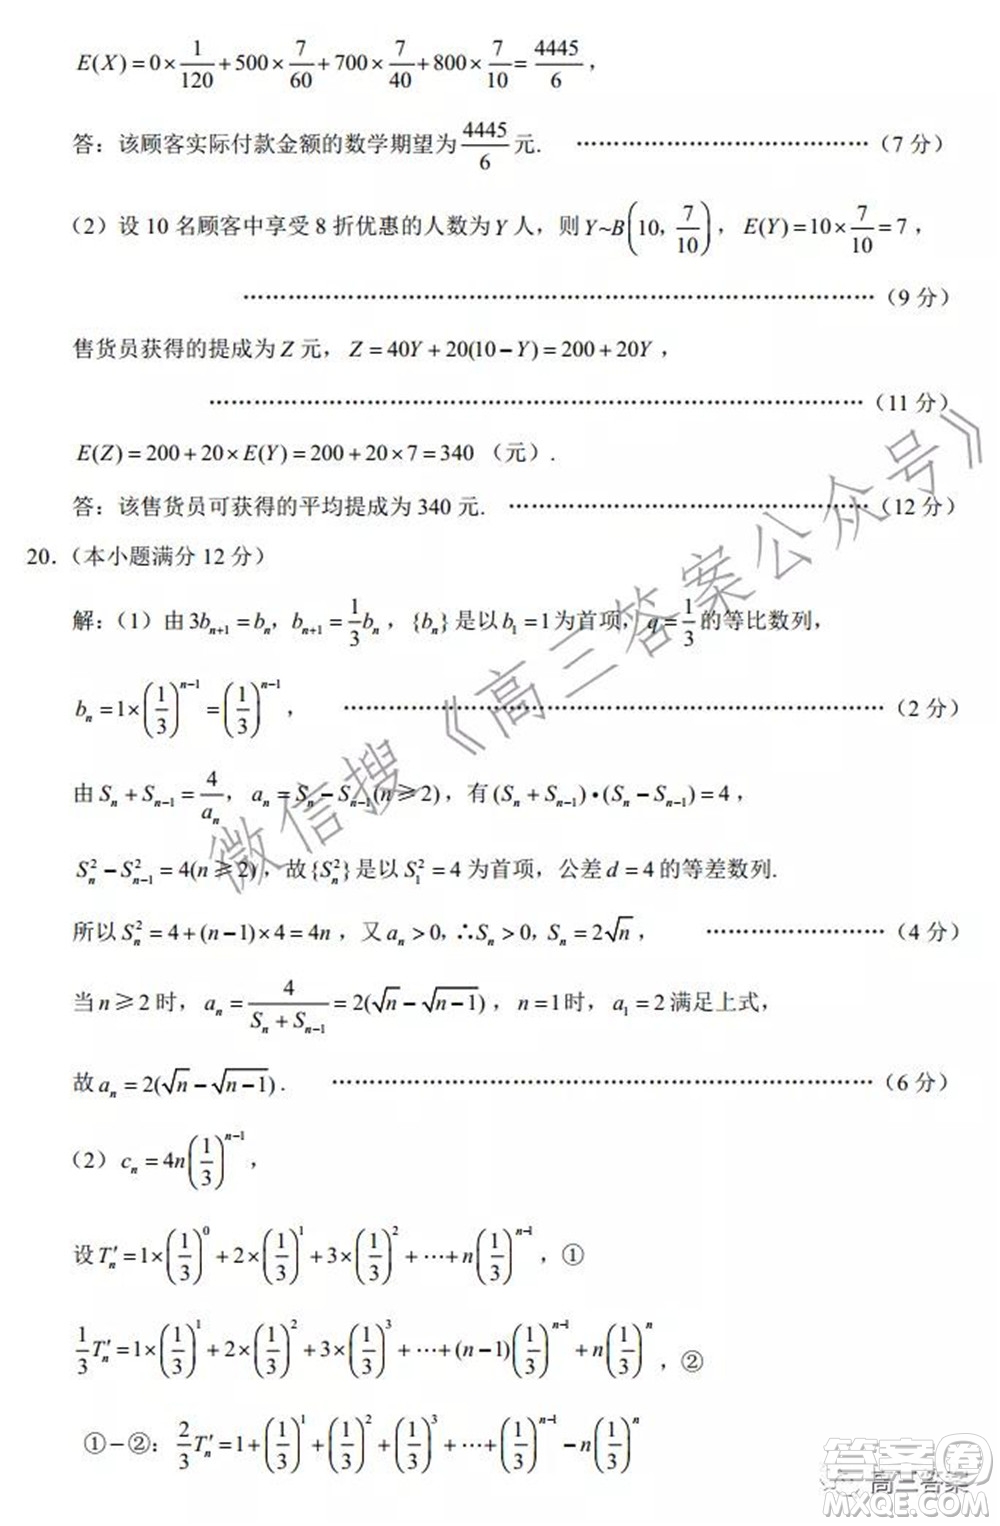 E(X)=0×1/120+500×7/60+700×7/40+800×7/10=4445/6，
答：该顾客实际付款金额的数学期望为4445/6元. ………………………………（7 分）
（2）设 10 名顾客中享受 8 折优惠的人数为 Y 人，则 Y~B(10，7/10)，E(Y)=10×7/10=7，
………………………………………………………………（9 分）
售货员获得的提成为 Z 元，Z=40Y+20(10−Y)=200+20Y，
………………………………………………………………（11 分）
E(Z)=200+20×E(Y)=200+20×7=340（元）.
答：该售货员可获得的平均提成为 340 元. ………………………………（12 分）
20.（本小题满分 12 分）
解：（1）由 3b_{n+1}=b_n，b_{n+1}=1/3 b_n，{b_n}是以 b_1=1为首项，q=1/3 的等比数列，
b_n=1×(1/3)^{n−1}=(1/3)^{n−1}， ………………………………………………（2 分）
由 S_n+S_{n−1}=4/a_n，a_n=S_n−S_{n−1}(n≥2)，有(S_n+S_{n−1})•(S_n−S_{n−1})=4，
S_n^2−S_{n−1}^2=4(n≥2)，故{S_n^2}是以 S_1^2=4 为首项，公差 d=4 的等差数列.
所以 S_n^2=4+(n−1)×4=4n，又 a_n>0，∴S_n>0，S_n=2√n， ………………（4 分）
当 n≥2 时，a_n=4/(S_n+S_{n−1})=2(√n−√(n−1))，n=1时，a_1=2 满足上式，
故 a_n=2(√n−√(n−1)). ………………………………………………（6 分）
（2）c_n=4n(1/3)^{n−1}，
设 T′_n=1×(1/3)^0+2×(1/3)^1+3×(1/3)^2+⋯+n(1/3)^{n−1}，①
1/3 T′_n=1×(1/3)^1+2×(1/3)^2+3×(1/3)^3+⋯+(n−1)(1/3)^{n−1}+n(1/3)^n，②
①−②：2/3 T′_n=1+(1/3)^1+(1/3)^2+(1/3)^3+⋯+(1/3)^{n−1}−n(1/3)^n
微信搜《高三答案公众号》
高三答案
答案圈
MXQE.COM